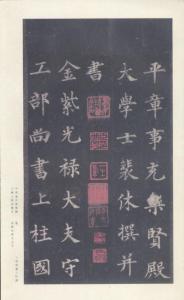 平章事充集賢殿
大學士裴休撰并
書
金紫光祿大夫守
工部尚書上柱國